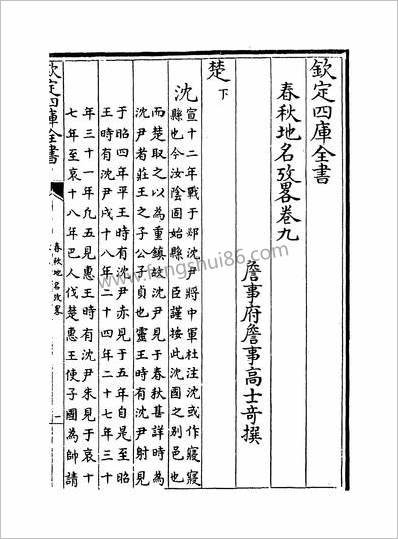 欽定四庫全書
春秋地名攷畧卷九
詹事府詹事高士奇撰
楚下
沈宣十二年戰于邲沈尹將中軍杜注沈或作寢寢
縣也今汝陰固始縣臣謹按此沈國之別邑也
而楚取之以為重鎮故沈尹見于春秋甚詳時為
沈尹者莊王之子公子貞也靈王時有沈尹射見
于昭四年平王時有沈尹赤見于五年自是至昭
王時有沈尹戌十八年二十四年二十七年三十
年三十一年凡五見惠王時有沈尹朱見于哀十
七年至哀十八年巴人伐楚惠王使子國為帥請
欽定四庫全書
春秋地名攷畧
一
www.fengshui86.com